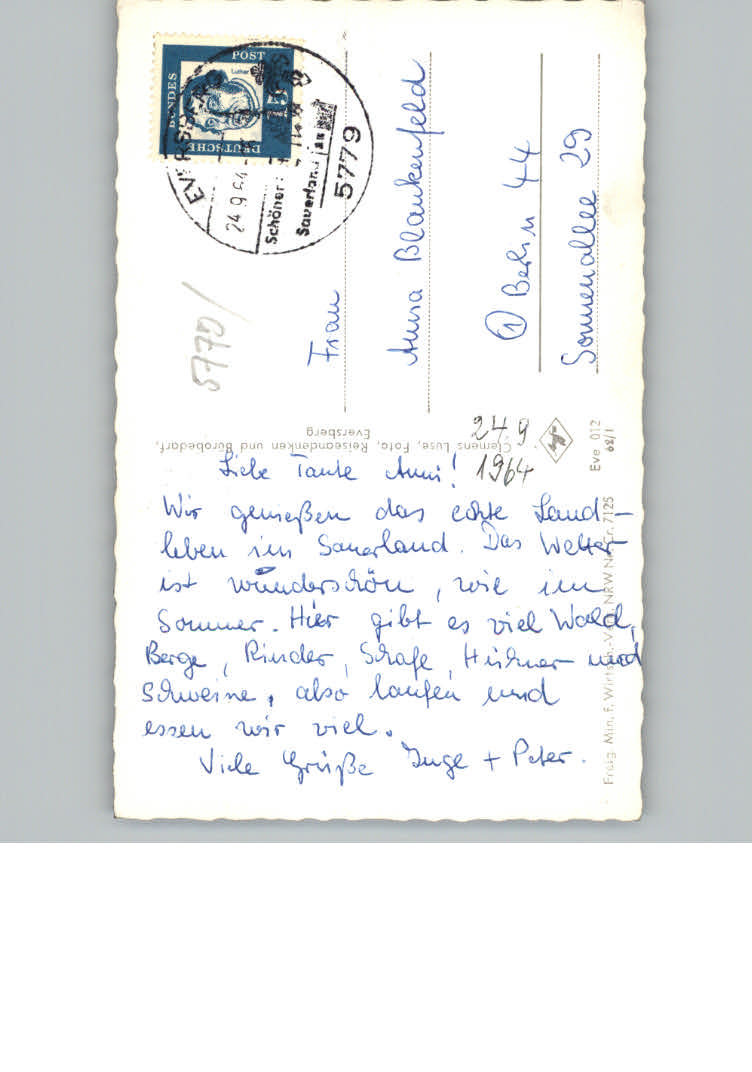 Liebe Tante Anni!
Wir genießen das echte Land-
leben im Sauerland. Das Wetter
ist wunderschön, wie im
Sommer. Hier gibt es viel Wald,
Berge, Rinder, Schafe, Hühner und
Schweine, also laufen und
essen wir viel.
Viele Grüße Inge + Peter.
249
1964
Frau
Anna Blankenfeld
1 Berlin 44
Sonnenallee 29
5770/
DEUTSCHE
BUNDES
POST
Luther
15
EVERSBERG
24.9.64
Schöner
Sauerland
5779
Clemens Luse, Foto, Reiseandenken und Bürobedarf,
Eversberg
Eve 012
68/1
Freig. Min. f. Wirtsch.-V. NRW Nr. 7125